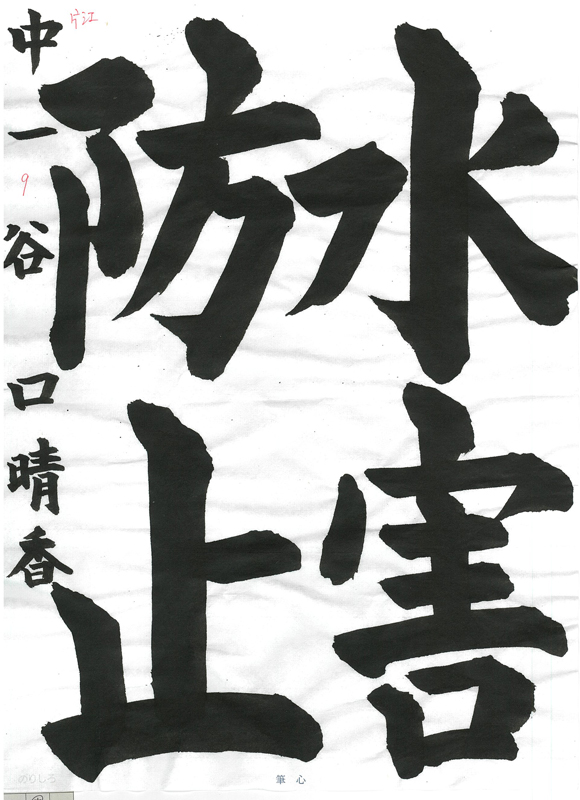 水害
防止
中一 谷口晴香
片江
9
筆心
のりしろ